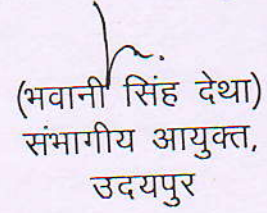 (भवानी सिंह देथा)
संभागीय आयुक्त,
उदयपुर